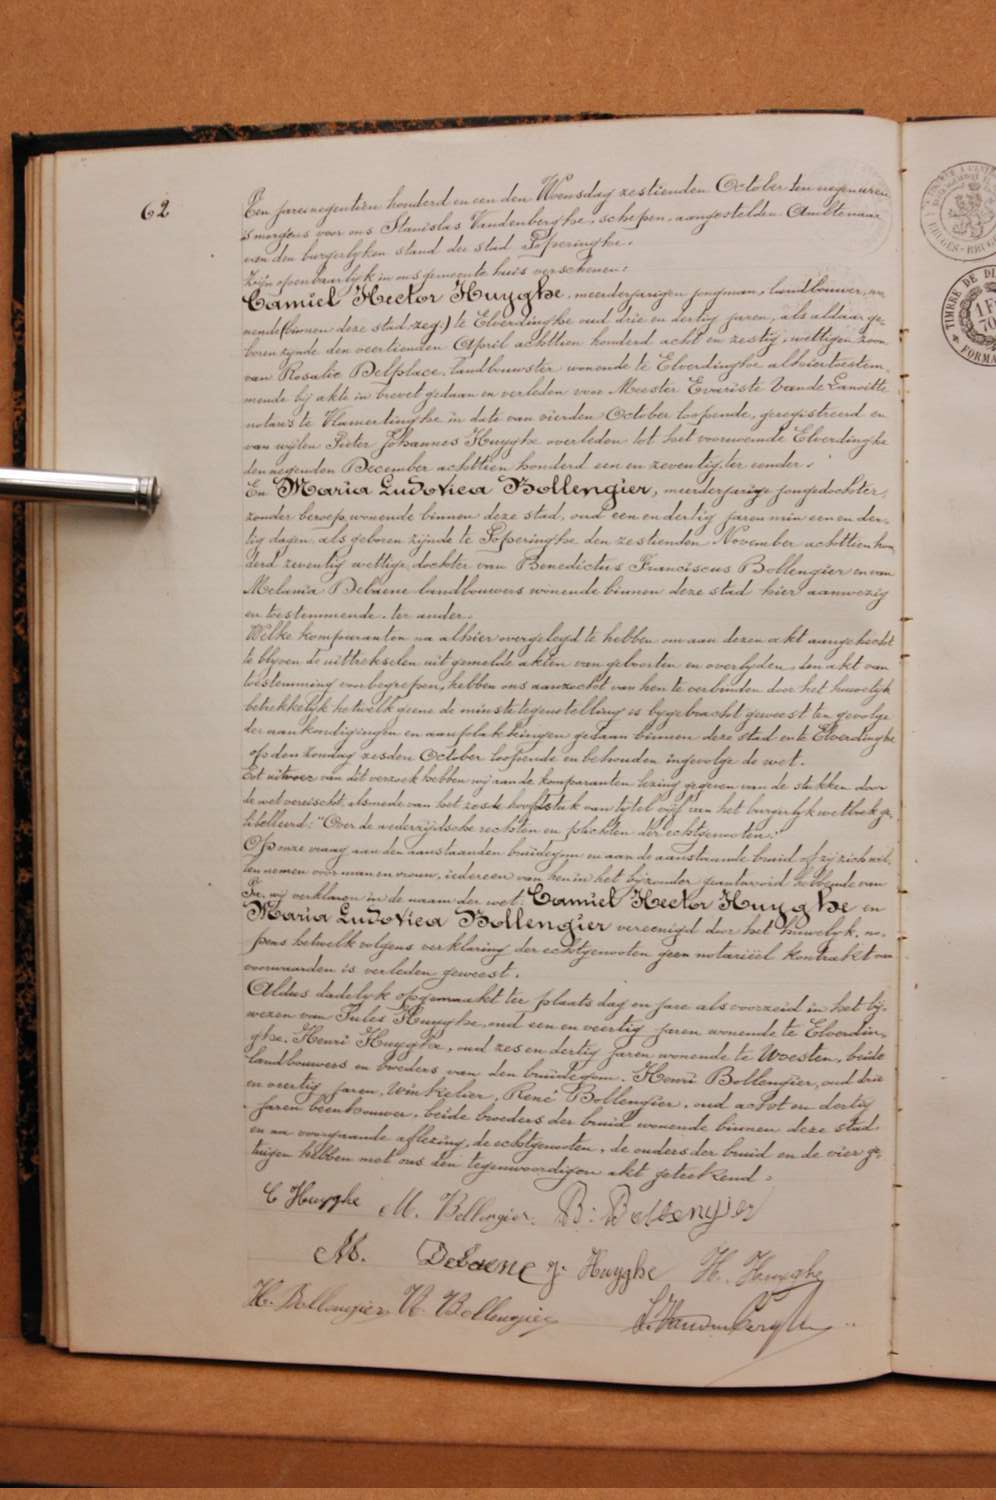 62
Een jare negentien honderd en een den Woensdag zestienden October ten negen uren
's morgens voor ons Stanislas Vandenberghe, schepen, aangestelden Ambtenaar
van den burgerlyken stand der stad Poperinghe.
Zijn openbaarlyk in ons gemeente huis verschenen:
Camiel Hector Huyghe, meerderjarigen jongman, landbouwer, wo-
nende (binnen deze stad zeg:) te Elverdinghe oud drie en dertig jaren, als aldaar ge-
boren zijnde den veertienden April achttien honderd acht en zestig, wettigen zoon
van Rosalie Delplace, landbouwster wonende te Elverdinghe alhier toestem-
mende bij akte in brevet gedaan en verleden voor Meester Evariste Vande Lanoitte
notaris te Vlamertinghe in date van vierden October loopende, geregistreerd en
van wijlen Pieter Johannes Huyghe overleden tot het voornoemde Elverdinghe
den negenden December achttien honderd een en zeventig, ter eender.
En Maria Ludovica Bollengier, meerderjarige jongedochter,
zonder beroep, wonende binnen deze stad, oud een en dertig jaren min een en der-
tig dagen, als geboren zijnde te Poperinghe den zestienden November achttien hon
derd zeventig wettige dochter van Benedictus Franciscus Bollengier en van
Melania Debaene landbouwers wonende binnen deze stad hier aanwezig
en toestemmende, ter ander.
Welke komparanten na alhier overgelegd te hebben om aan dezen akt aangehecht
te blyven de uittrekselen uit gemelde akten van geboorten en overlyden, den akt van
toestemming voorbegrepen, hebben ons aanzocht van hen te verbinden door het huwelyk
betrekkelyk hetwelk geene de minste tegenstelling is bygebracht geweest ten gevolge
der aankondigingen en aanplakkingen gedaan binnen deze stad en te Elverdinghe
op den Zondag zesden October loopende en behouden ingevolge de wet.
Tot uitvoer van dit verzoek hebben wij aan de komparanten lezing gegeven van de stukken door
de wet vereischt, alsmede van het zeste hoofdstuk van tytel vijf van het burgerlyk wetboek ge-
libelleerd: "Over de wederzijdsche rechten en plichten der echtgenooten."
Op onze vraag aan den aanstaanden bruidegom en aan de aanstaande bruid of zij zich wil-
len nemen voor man en vrouw, iedereen van hen in het bijzonder geantwoord hebbende van
Ja, wij verklaren in de naam der wet: Camiel Hector Huyghe en
Maria Ludovica Bollengier vereenigd door het huwelyk, no-
pens hetwelk volgens verklaring der echtgenooten geen notariëel kontrakt van
voorwaarden is verleden geweest.
Aldus dadelyk opgemaakt ter plaats dag en jare als voorzeid in het bij-
wezen van Jules Huyghe, oud een en veertig jaren wonende te Elverdin-
ghe, Henri Huyghe, oud zes en dertig jaren wonende te Woesten, beide
landbouwers en broeders van den bruidegom, Henri Bollengier, oud drie
en veertig jaren, winkelier, René Bollengier, oud acht en dertig
jaren beenhouwer, beide broeders der bruid wonende binnen deze stad
en na voorgaande aflezing, de echtgenooten, de ouders der bruid en de vier ge-
tuigen hebben met ons den tegenwoordigen akt geteekend.
C Huyghe M. Bollengier. B: Bollengier
M. Debaene J. Huyghe H. Huyghe
H. Bollengier R. Bollengier S. Vandenberghe
TIMBRE DE DI
1 F
70
FORMA
BRUGES-BRUG